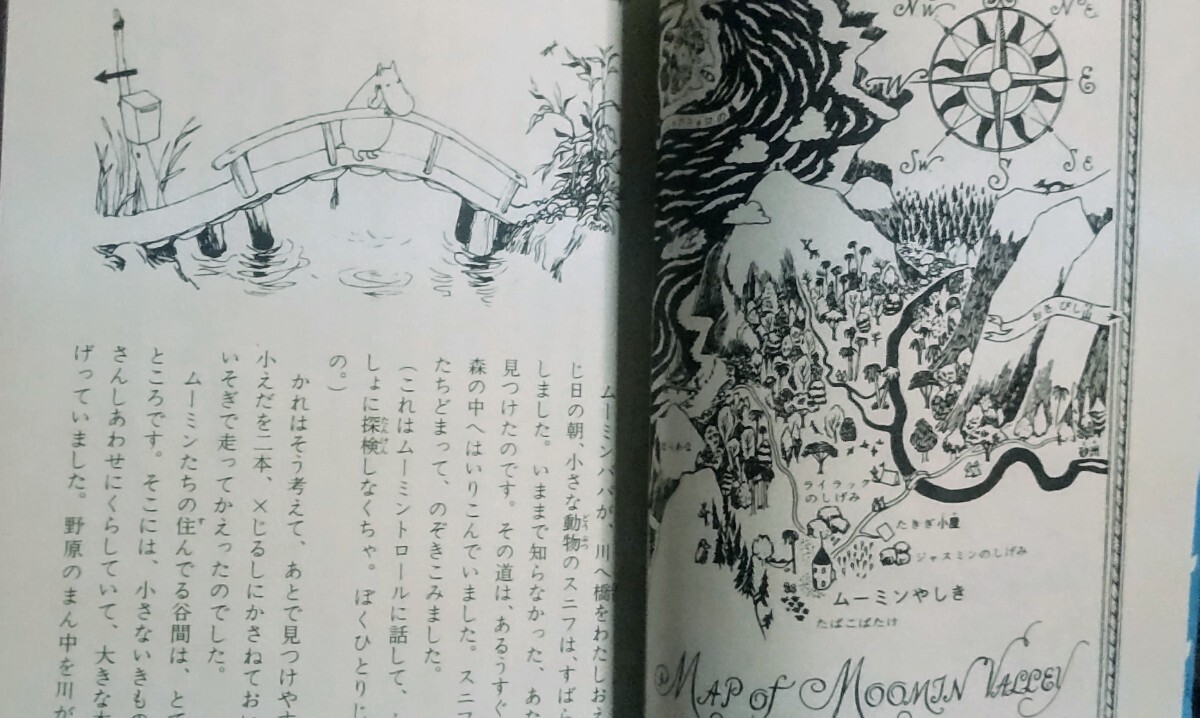 ムーミンパパが、川へ橋をわたしお
じ日の朝、小さな動物のスニフは、すばら
しました。いままで知らなかった、あた
見つけたのです。その道は、あるうすぐ
森の中へはいりこんでいました。スニフ
たちどまって、のぞきこみました。
(これはムーミントロールに話して、
しょに探検しなくちゃ。ぼくひとりじ
の。)
かれはそう考えて、あとで見つけやす
小えだを二本、×じるしにかさねておい
いそぎで走ってかえったのでした。
ムーミンたちの住んでる谷間は、とて
ところです。そこには、小さないきもの
さんしあわせにくらしていて、大きな木
げっていました。野原のまん中を川が
NW
NE
W
E
SW
S
SE
おさびし山
砂州
ライラック
のしげみ
たきぎ小屋
ジャスミンのしげみ
ムーミンやしき
たばこばたけ
MAP of MOOMIN VALLEY